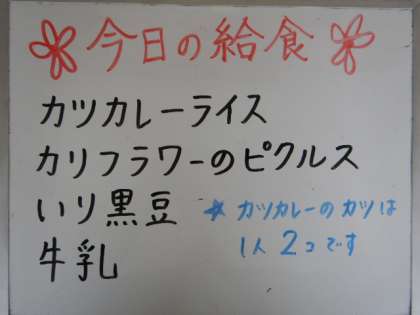 今日の給食
カツカレーライス
カリフラワーのピクルス
いり黒豆
牛乳
★カツカレーのカツは
1人2コです